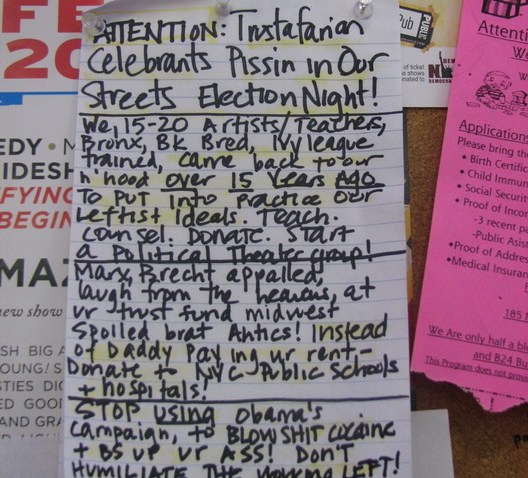 ATTENTION: Trustafarian
Celebrants Pissin in Our
Streets Election Night!
We, 15-20 Artists/Teachers,
Bronx, BK Bred, Ivy league
trained, came back to our
n'hood over 15 Years AGO
To PUT into practice our
Leftist Ideals. Teach.
Counsel. Donate. Start
a Political Theater group!
Marx, Brecht appalled,
laugh from the heavens, at
ur trust fund midwest
Spoiled brat Antics! Instead
of Daddy paying ur rent-
Donate to NYC Public Schools
+ hospitals!
STOP using Obama's
campaign, to BLOW SHIT cocaine
+ BS up ur ASS! DON'T
HUMILIATE THE working LEFT!
FE
20
EDY • M
IDESH
FYING
BEGIN
MAZ
new show
SH BIG A
OUNG/S
STIES DIC
ED GOO
AND GRA
Pub
PUBLIC
of ticket
e shows
nated to
Attenti
W
Applications
Please bring the
• Birth Certific
• Child Immun
• Social Security
• Proof of Incom
-3 recent pa
-Public Asis
•Proof of Addres
•Medical Insuran
185
We Are only half a bl
and B24 Bu
This Program does not pro